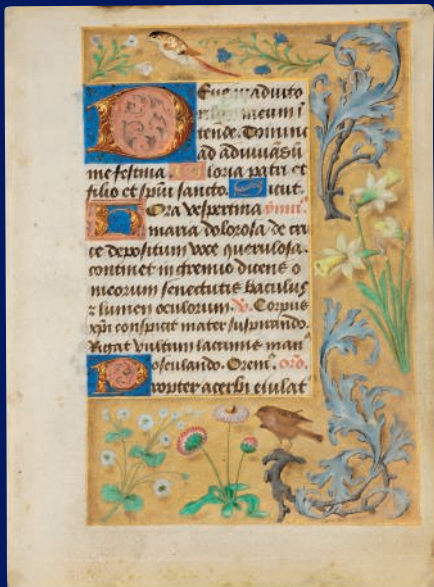 Deus in adiuto
rium meum i
tende. Domine
ad adiuuandū
me festina. Gloria patri et
filio et spūi sancto. Sicut.
Hora vespertina
maria dolorosa de cru
ce depositum voce querulosa.
continet in gremio dicens o
meorum senectutis baculus
z lumen oculorum. V. Corpus
xpi conspicit mater suspirando.
Rigat vultum lacrime man
osculando. Orem. oro.
Propter acerbi eiulat